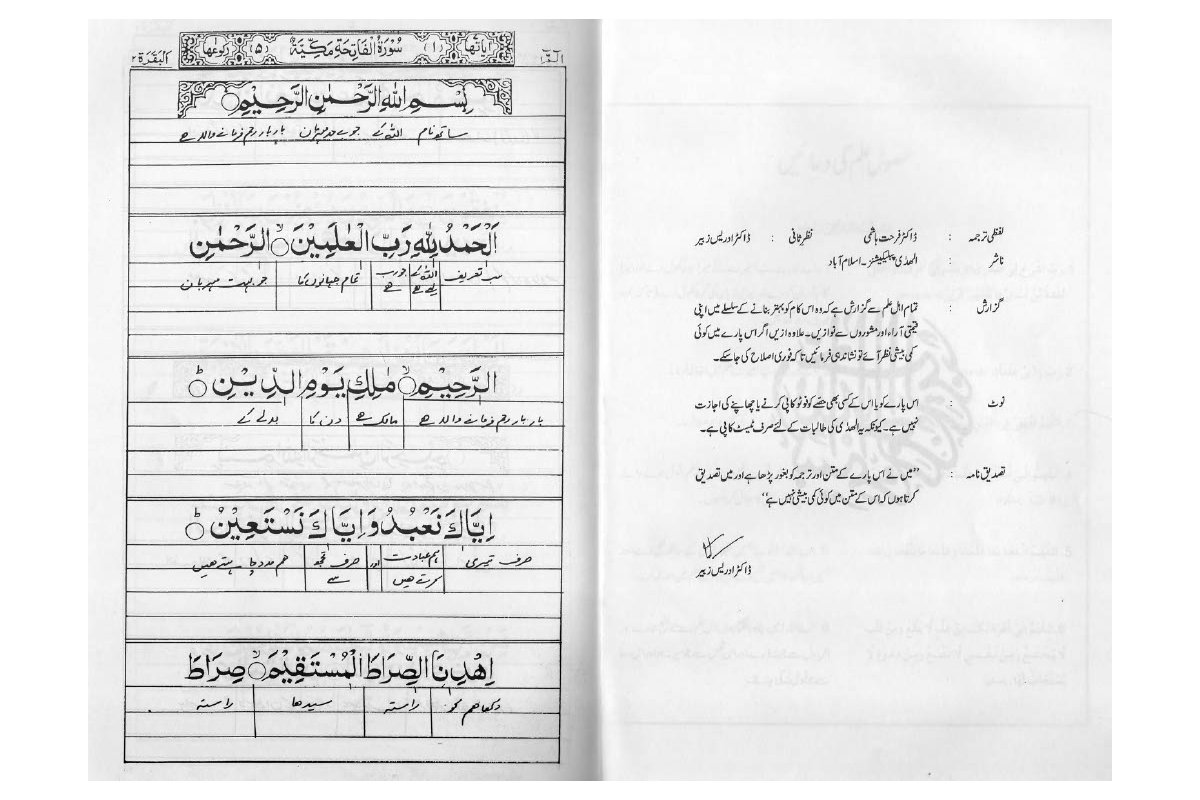 لفظی ترجمہ : ڈاکٹر فرحت ہاشمی نظرثانی : ڈاکٹر ادریس زبیر
ناشر : الھدیٰ پبلیکیشنز۔ اسلام آباد
گزارش : تمام اہل علم سے گزارش ہے کہ وہ اس کام کو بہتر بنانے کے سلسلے میں اپنی
قیمتی آراء اور مشوروں سے نوازیں۔ علاوہ ازیں اگر اس پارے میں کوئی
کمی بیشی نظر آئے تو نشاندہی فرمائیں تاکہ فوری اصلاح کی جا سکے۔
نوٹ : اس پارے کو یا اس کے کسی بھی حصّے کو فوٹو کاپی کرنے یا چھاپنے کی اجازت
نہیں ہے۔ کیونکہ یہ الھدیٰ کی طالبات کے لئے صرف ٹیسٹ کاپی ہے۔
تصدیق نامہ : ”میں نے اس پارے کے متن اور ترجمہ کو بغور پڑھا ہے اور میں تصدیق
کرتا ہوں کہ اس کے متن میں کوئی کمی بیشی نہیں ہے“
ڈاکٹر ادریس زبیر
الٓمّٓ ١ اٰيَاتُهَا (١) سُوْرَةُ الْفَاتِحَةِ مَكِّيَّةٌ (٥) رُكُوْعُهَا اَلْبَقَرَة ٢
بِسْمِ اللّٰهِ الرَّحْمٰنِ الرَّحِيْمِ
ساتھ نام اللہ کے جو بے حد مہربان بار بار رحم فرمانے والا ہے
اَلْحَمْدُ لِلّٰهِ رَبِّ الْعٰلَمِيْنَ ۙ الرَّحْمٰنِ
سب تعریف اللہ کے جو رب تمام جہانوں کا جو بہت مہربان
لیے ہے ہے
الرَّحِيْمِ ۙ مٰلِكِ يَوْمِ الدِّيْنِ ؕ
بار بار رحم فرمانے والا ہے مالک ہے دن کا بدلے کے
اِيَّاكَ نَعْبُدُ وَ اِيَّاكَ نَسْتَعِيْنُ ؕ
صرف تیری ہم عبادت اور صرف تجھ ہم مدد چاہتے ہیں
کرتے ہیں سے
اِهْدِنَا الصِّرَاطَ الْمُسْتَقِيْمَ ۙ صِرَاطَ
دکھا ہم کو راستہ سیدھا راستہ